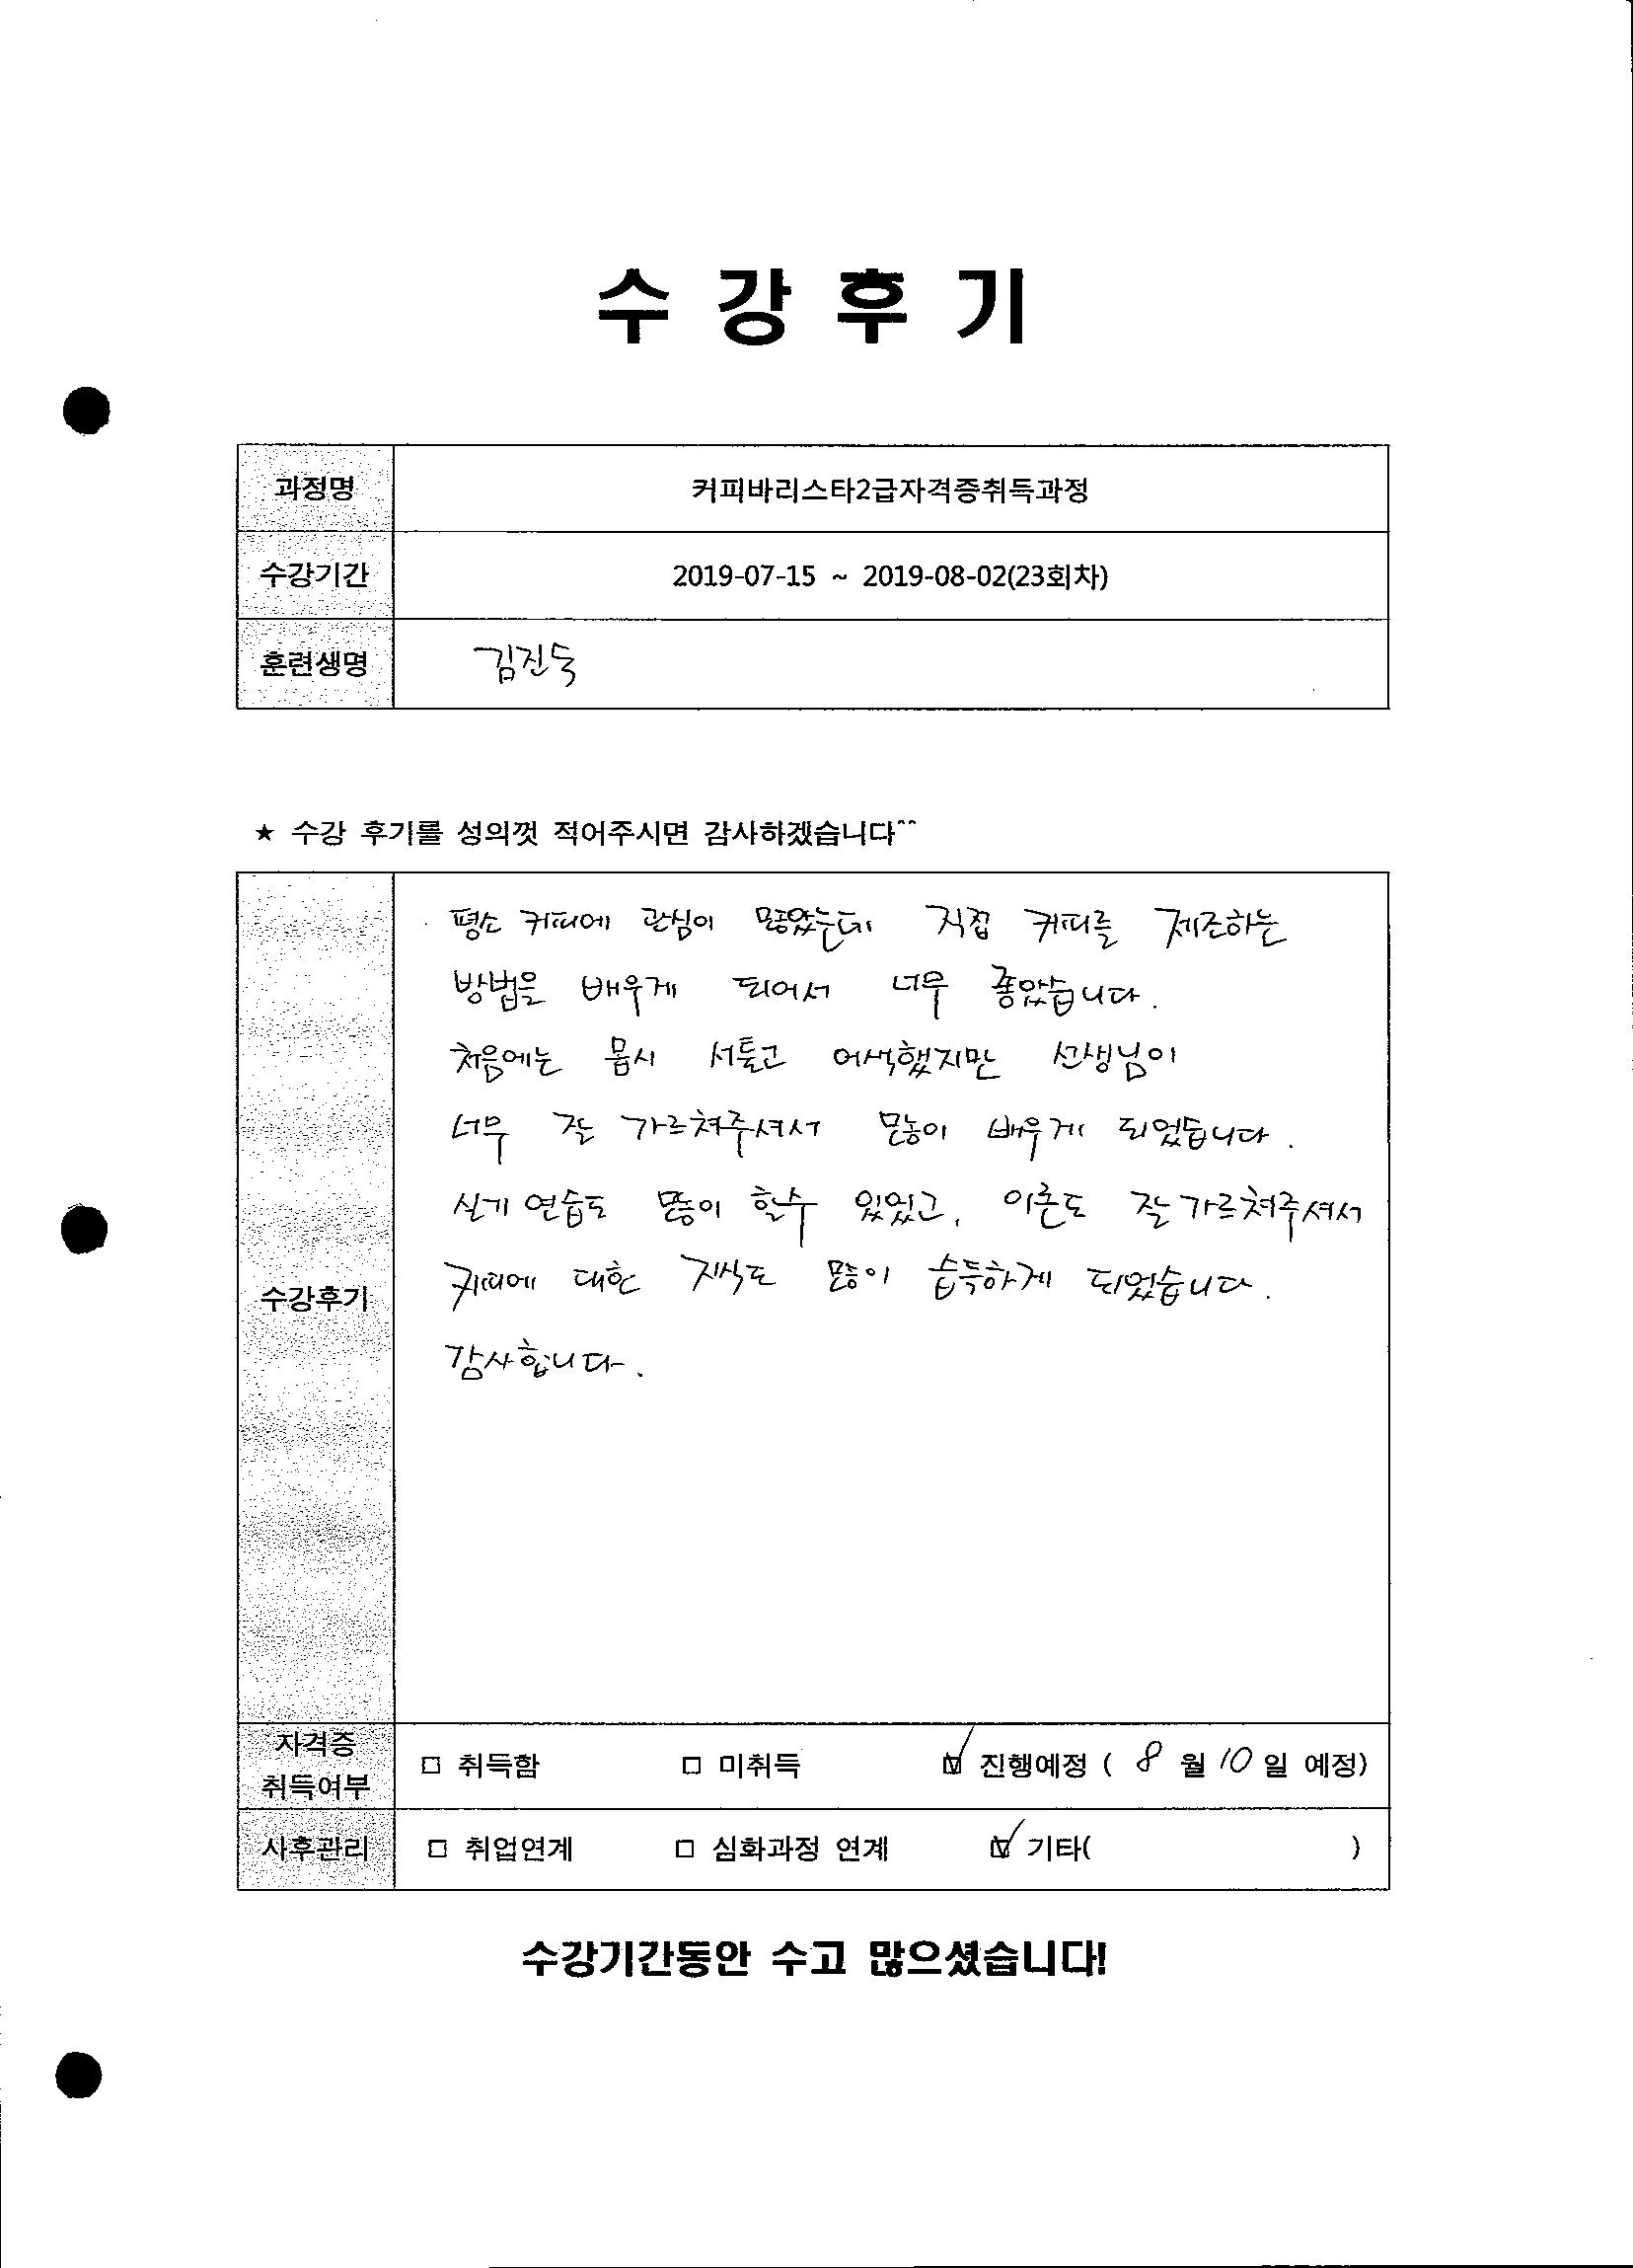 수 강 후 기
과정명 커피바리스타2급자격증취득과정
수강기간 2019-07-15 ~ 2019-08-02(23회차)
훈련생명 김진
★ 수강 후기를 성의껏 적어주시면 감사하겠습니다^^
평소 커피에 관심이 많았는데 직접 커피를 제조하는
방법을 배우게 되어서 너무 좋았습니다.
처음에는 몹시 서툴고 어색했지만 선생님이
너무 잘 가르쳐주셔서 많이 배우게 되었습니다.
실기 연습도 많이 할수 있었고, 이론도 잘 가르쳐주셔서
수강후기 커피에 대한 지식도 많이 습득하게 되었습니다.
감사합니다.
자격증
취득여부 □ 취득함 □ 미취득 ☑ 진행예정 ( 8 월 10 일 예정)
사후관리 □ 취업연계 □ 심화과정 연계 ☑ 기타( )
수강기간동안 수고 많으셨습니다!